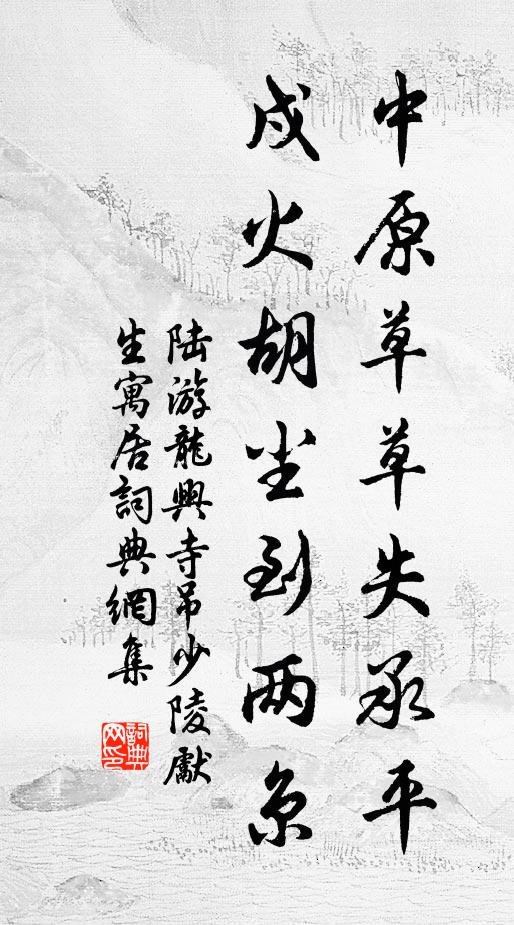 中原草草失承平
戍火胡尘到两京
陆游龍興寺吊少陵先
生寓居詞典網集
詞典
网印